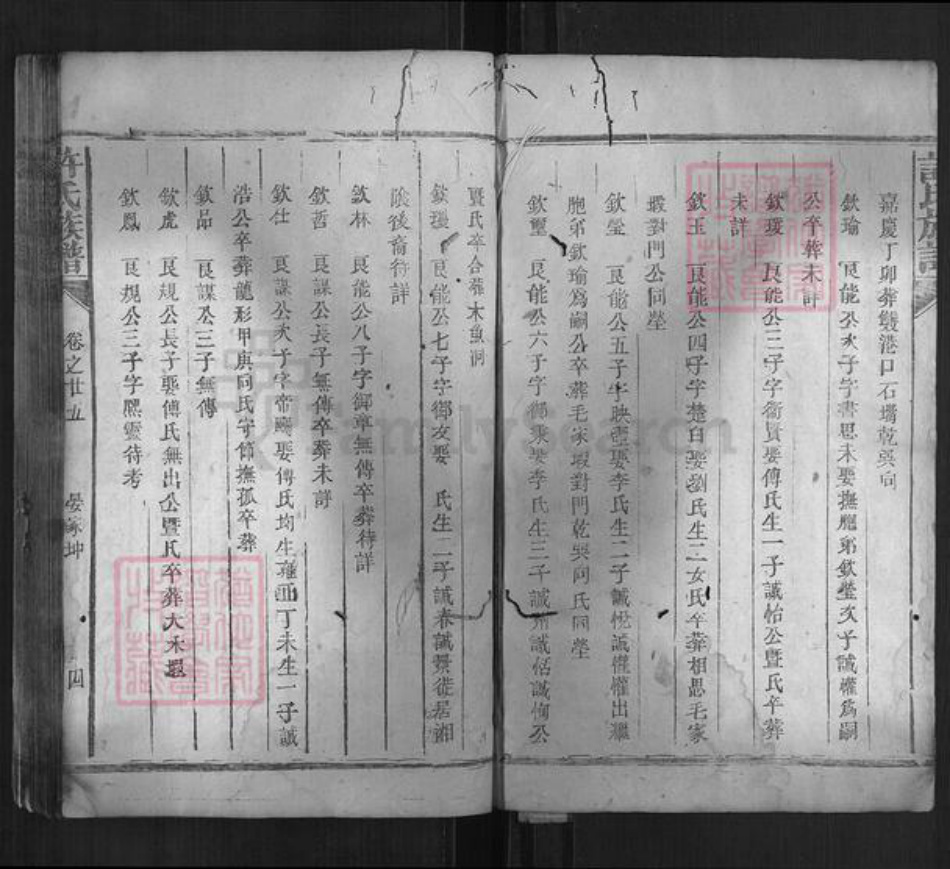 嘉慶丁卯葬雙港口石嘴乾巽向
欽瑜 良能公次子字書思未娶撫胞弟欽瑩次子誠權為嗣
公卒葬未詳
欽瑗 良能公三子字衡賢娶傅氏生一子誠怡公暨氏卒葬
未詳
欽玉 良能公四子字楚白娶劉氏生二女氏卒葬相思毛家
塅對門公同塋
欽瑩 良能公五子字映壺娶李氏生二子誠悅誠權權出繼
胞弟欽瑜為嗣公卒葬毛家塅對門乾巽向氏同塋
欽璽 良能公六子字御乘娶李氏生三子誠州誠恬誠恂公
暨氏卒合葬木魚洞
欽璦 良能公七子字御友娶 氏生二子誠春誠景徙居湘
陰後裔待詳
欽林 良能公八子字御章無傳卒葬待詳
欽哲 良謀公長子無傳卒葬未詳
欽仕 良謀公次子字帝颺娶傅氏均生雍正丁未生一子誠
浩公卒葬龍形甲庚向氏守節撫孤卒葬
欽品 良謀公三子無傳
欽虎 良規公長子娶傅氏無出公暨氏卒葬大禾塅
欽鳳 良規公三子字熙靈待考
許氏族譜
卷之廿五
晏家坤
四
許氏族譜
FamilySearch